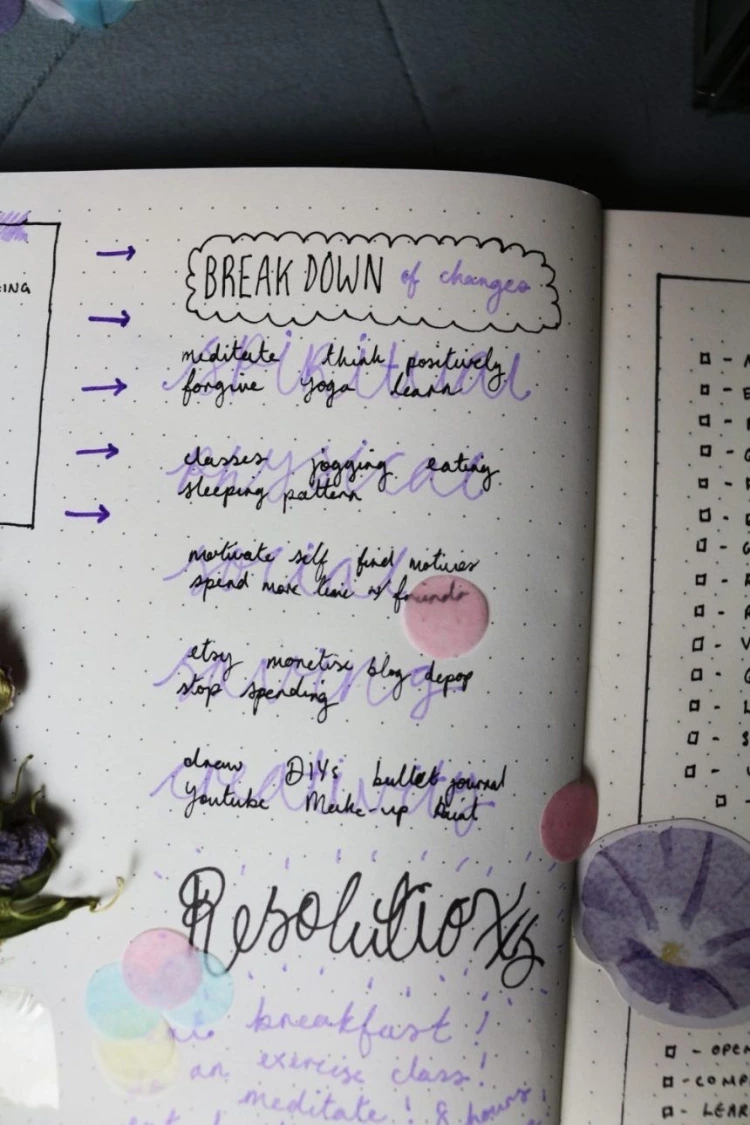 BREAK DOWN of changes
spiritual
meditate think positively
forgive yoga learn
physical
classes jogging eating
sleeping pattern
social
motivate self find motives
spend more time w friends
savings
etsy monetise blog depop
stop spending
creativity
draw DIYs bullet journal
Youtube Make-up Paint
Resolutions
breakfast!
an exercise class!
meditate! 8 hours
- OPEN
- COMP
- LEAR